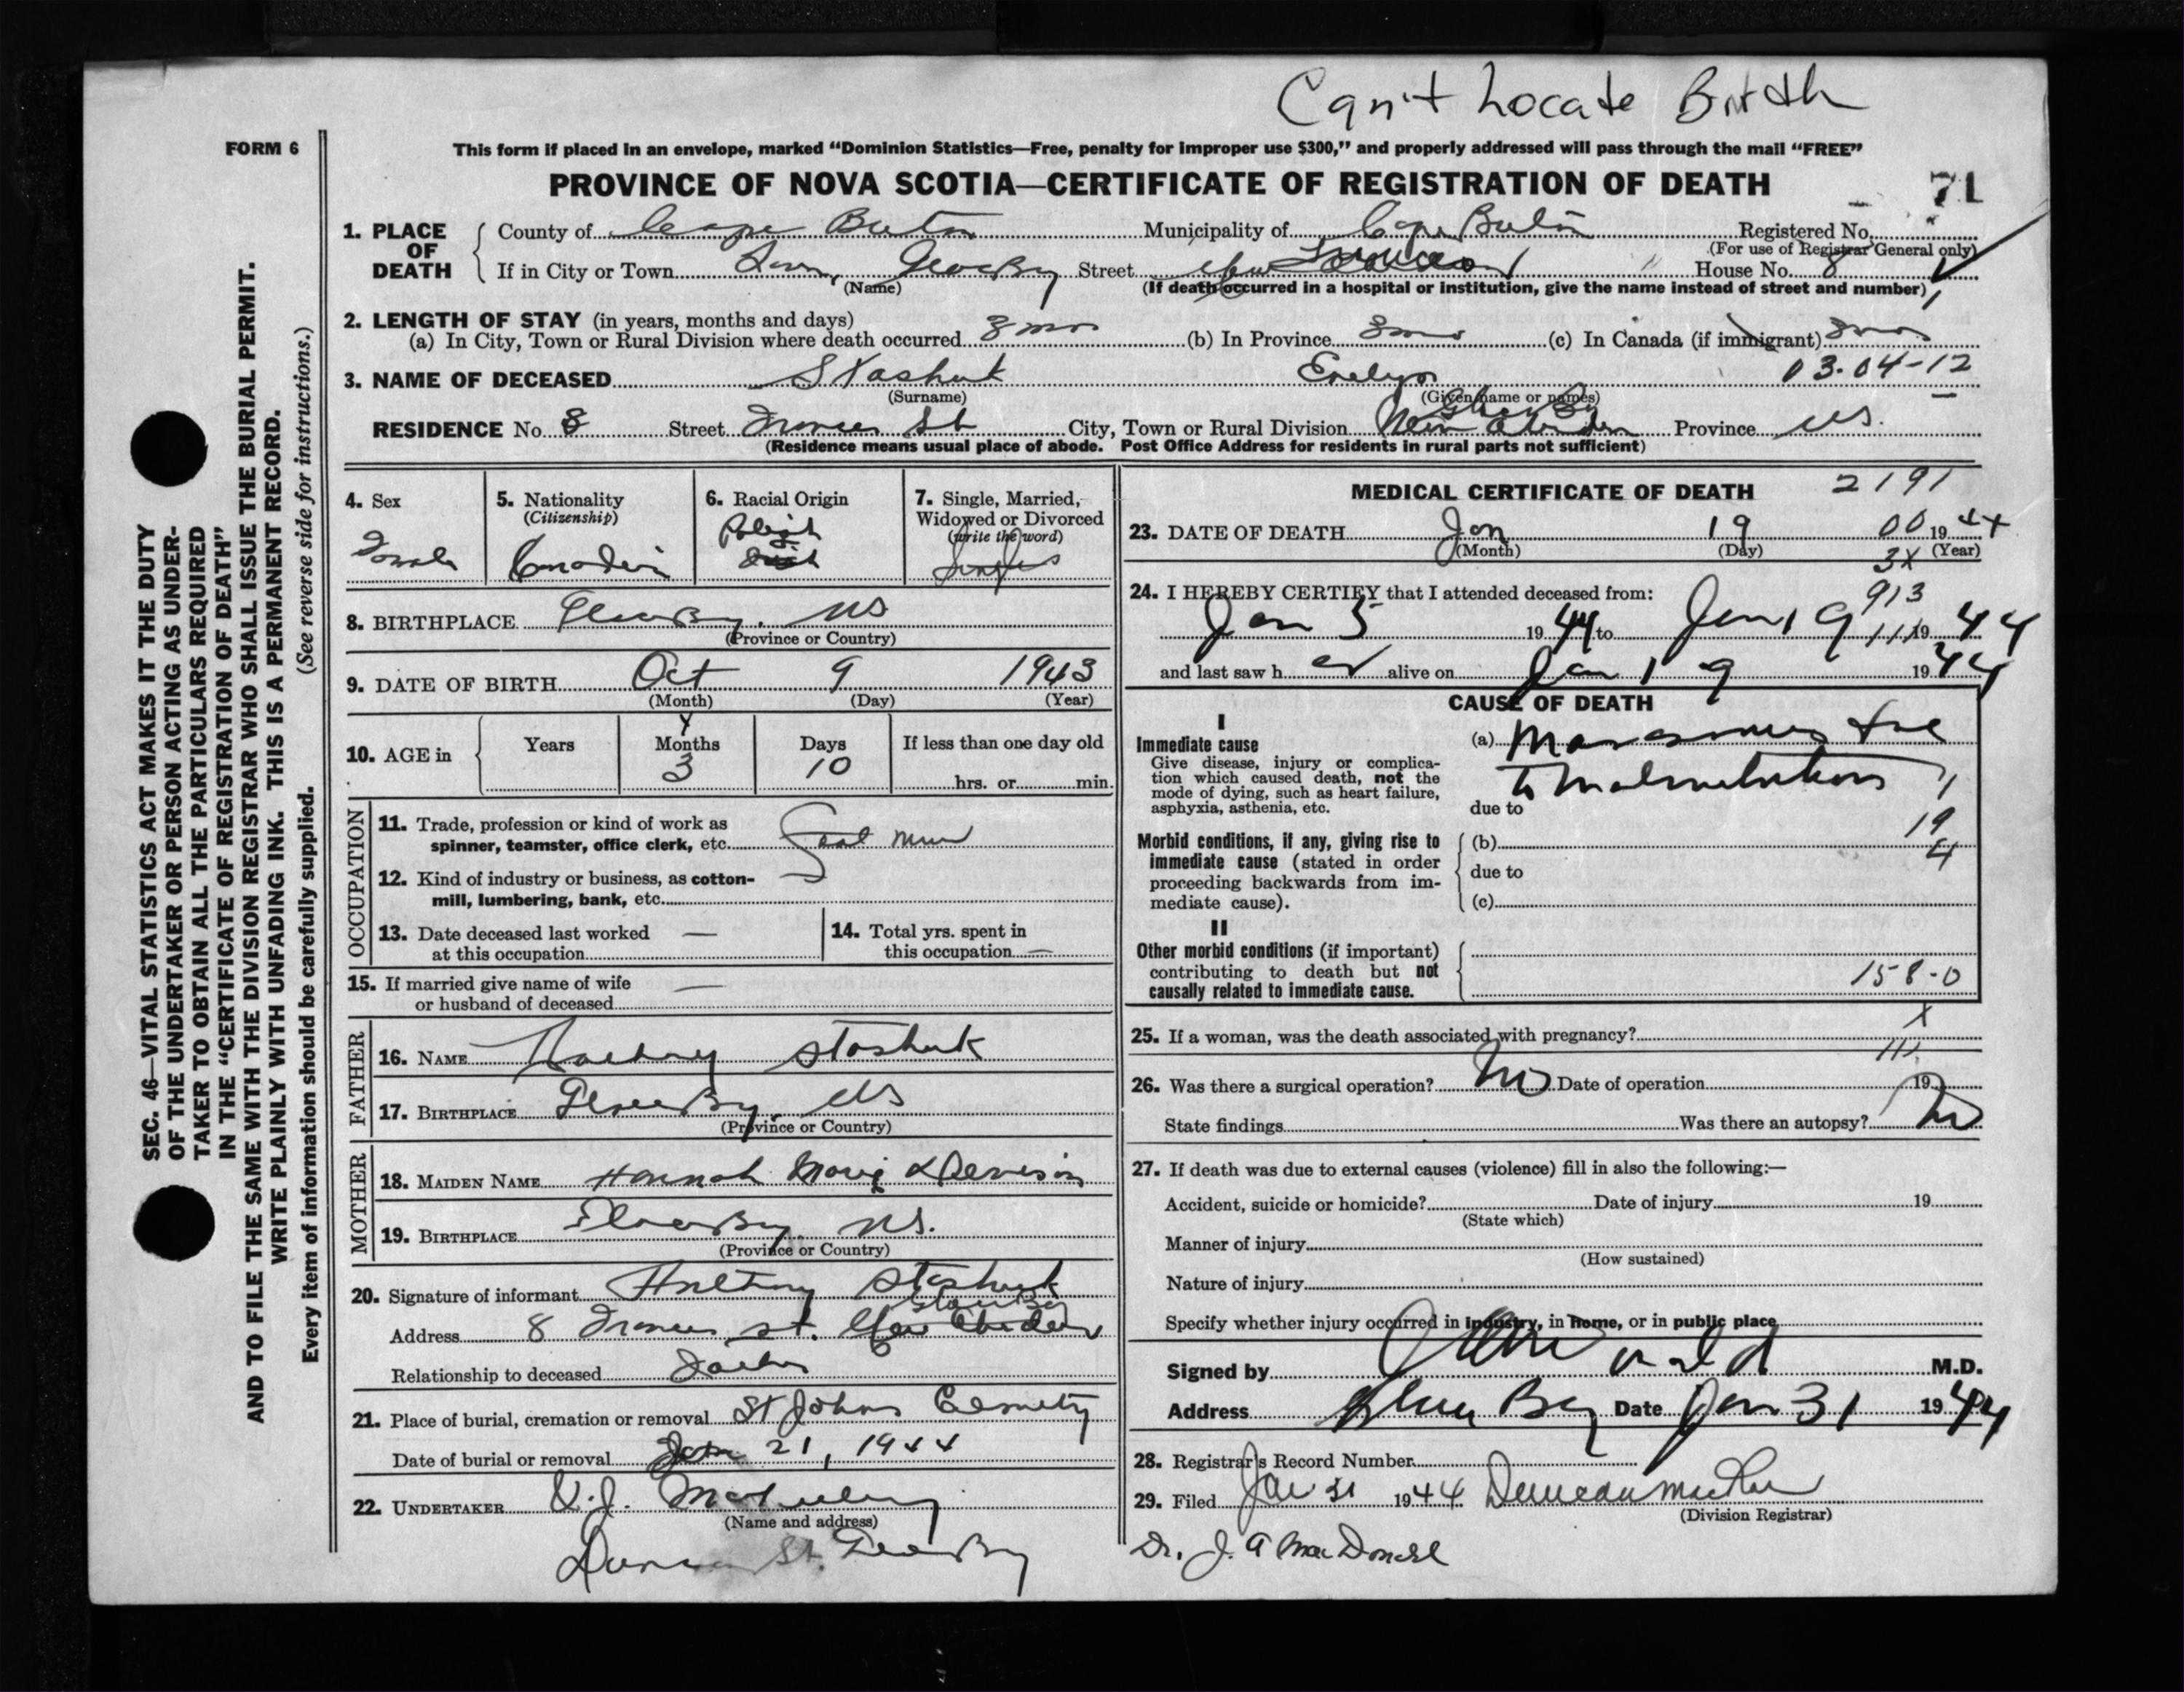 Can't Locate Birth
FORM 6
This form if placed in an envelope, marked “Dominion Statistics—Free, penalty for improper use $300,” and properly addressed will pass through the mail “FREE”
PROVINCE OF NOVA SCOTIA—CERTIFICATE OF REGISTRATION OF DEATH 71
1. PLACE OF DEATH County of Cape Breton Municipality of Cape Breton Registered No.
(For use of Registrar General only)
If in City or Town Town, Glace Bay Street House No. 8
(Name) (If death occurred in a hospital or institution, give the name instead of street and number)
2. LENGTH OF STAY (in years, months and days)
(a) In City, Town or Rural Division where death occurred 3 mos (b) In Province 3 mos (c) In Canada (if immigrant) 3 mos
3. NAME OF DECEASED Stashuk Evelyn 03.04-12
(Surname) (Given name or names)
Glace Bay
RESIDENCE No. 8 Street Francis St City, Town or Rural Division New Aberdeen Province NS.
(Residence means usual place of abode. Post Office Address for residents in rural parts not sufficient)
4. Sex
Female
5. Nationality
(Citizenship)
Canadian
6. Racial Origin
Polish
7. Single, Married,
Widowed or Divorced
(write the word)
Single
8. BIRTHPLACE Glace Bay. NS
(Province or Country)
9. DATE OF BIRTH Oct 9 1943
(Month) (Day) (Year)
10. AGE in Years Months Days If less than one day old
3 10
hrs. or min.
OCCUPATION
11. Trade, profession or kind of work as
spinner, teamster, office clerk, etc.
12. Kind of industry or business, as cotton-
mill, lumbering, bank, etc.
13. Date deceased last worked —
at this occupation
14. Total yrs. spent in
this occupation —
15. If married give name of wife —
or husband of deceased
FATHER
16. NAME Stashuk
17. BIRTHPLACE Glace Bay. NS
(Province or Country)
MOTHER
18. MAIDEN NAME Hannah Marie
19. BIRTHPLACE Glace Bay NS.
(Province or Country)
20. Signature of informant Anthony Stashuk
Glace Bay
Address 8 Francis St. New Aberdeen
Relationship to deceased Father
21. Place of burial, cremation or removal St Johns Cemetery
Date of burial or removal Jan 21, 1944
22. UNDERTAKER V.J.
(Name and address)
St. Glace Bay
MEDICAL CERTIFICATE OF DEATH 2191
23. DATE OF DEATH Jan 19 00 1944
(Month) (Day) 3X (Year)
24. I HEREBY CERTIFY that I attended deceased from: 913
Jan 5 1944 to Jan 19 1944
and last saw her alive on Jan 19 1944
CAUSE OF DEATH
I
Immediate cause
Give disease, injury or complica-
tion which caused death, not the
mode of dying, such as heart failure,
asphyxia, asthenia, etc.
(a) Marasmus due
to Malnutrition
due to
Morbid conditions, if any, giving rise to
immediate cause (stated in order
proceeding backwards from im-
mediate cause).
(b) 19
4
due to
(c)
II
Other morbid conditions (if important)
contributing to death but not
causally related to immediate cause.
158-0
25. If a woman, was the death associated with pregnancy? X
26. Was there a surgical operation? No Date of operation 19
State findings Was there an autopsy? No
27. If death was due to external causes (violence) fill in also the following:—
Accident, suicide or homicide? Date of injury 19
(State which)
Manner of injury
(How sustained)
Nature of injury
Specify whether injury occurred in industry, in home, or in public place
Signed by M.D.
Address Glace Bay Date Jan 31 1944
28. Registrar's Record Number
29. Filed Jan 31 1944 Duncan
(Division Registrar)
Dr. J. A MacDonald
SEC. 46—VITAL STATISTICS ACT MAKES IT THE DUTY
OF THE UNDERTAKER OR PERSON ACTING AS UNDER-
TAKER TO OBTAIN ALL THE PARTICULARS REQUIRED
IN THE “CERTIFICATE OF REGISTRATION OF DEATH”
AND TO FILE THE SAME WITH THE DIVISION REGISTRAR WHO SHALL ISSUE THE BURIAL PERMIT.
WRITE PLAINLY WITH UNFADING INK. THIS IS A PERMANENT RECORD.
Every item of information should be carefully supplied. (See reverse side for instructions.)